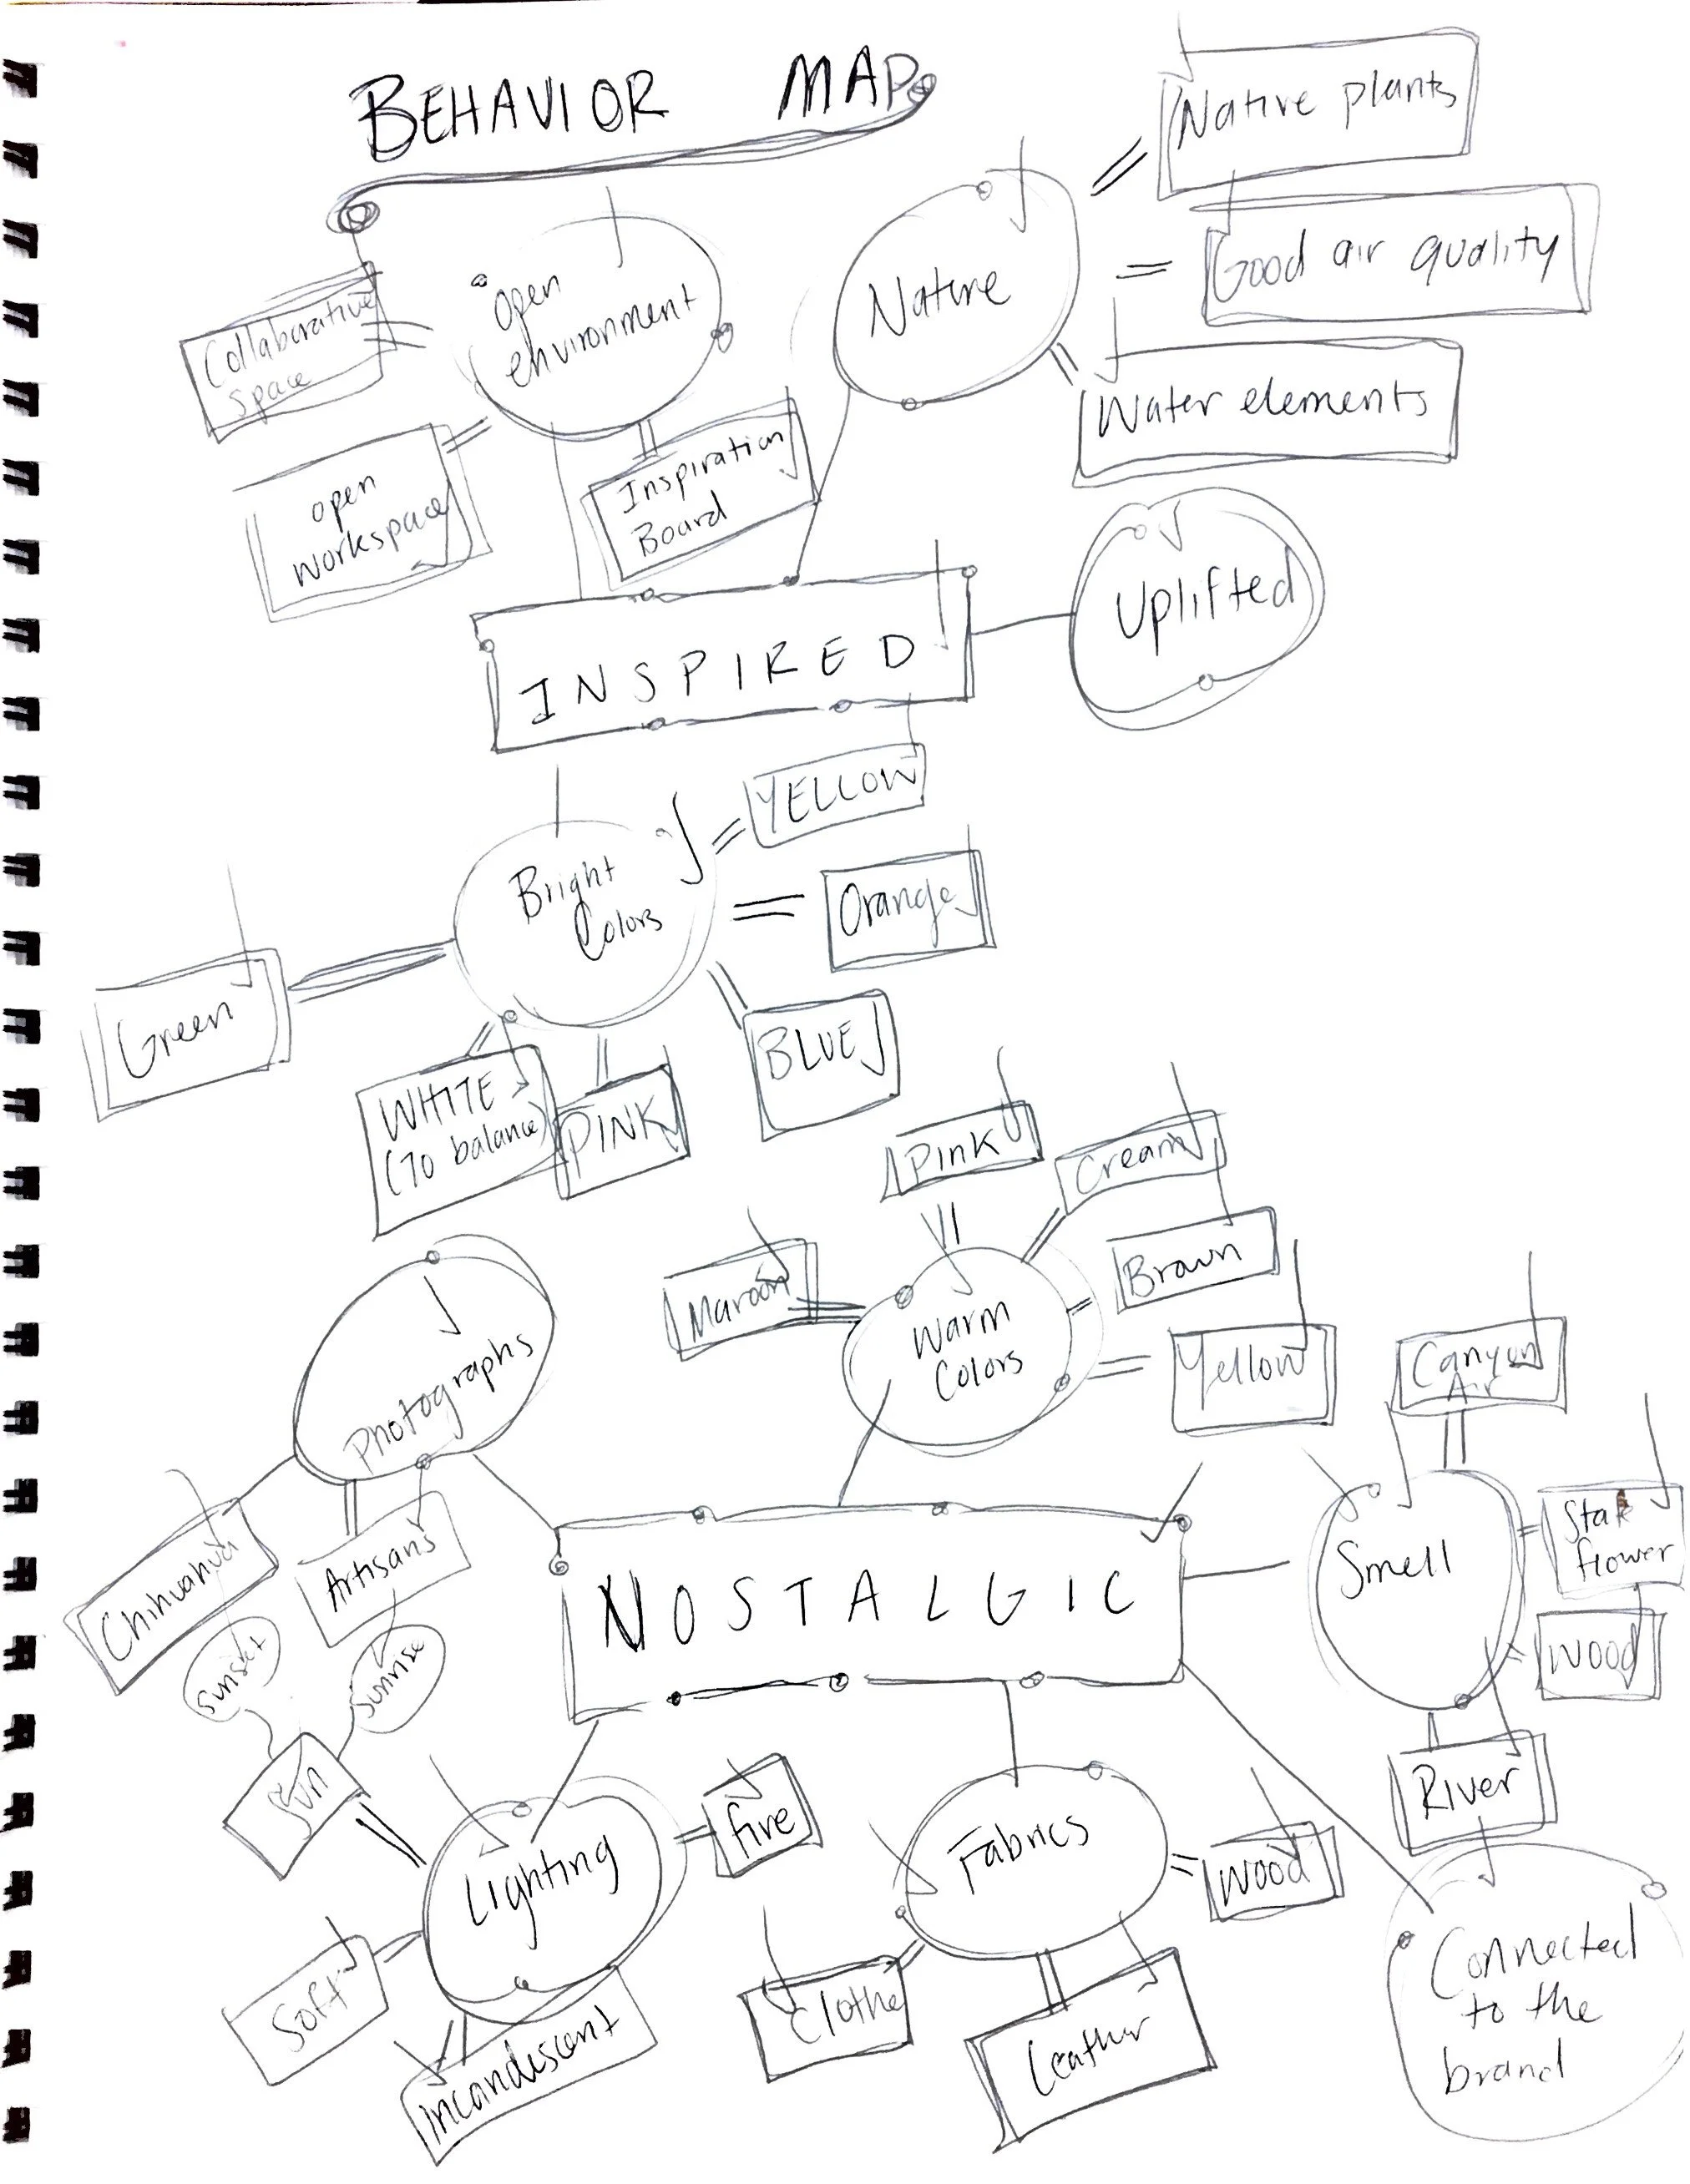 BEHAVIOR MAP
Native plants
Good air quality
Nature
Water elements
Open
environment
Collaborative
space
open
workspace
Inspiration
Board
INSPIRED
Uplifted
YELLOW
Bright
Colors
Orange
Green
BLUE
WHITE
(To balance)
PINK
Pink
Cream
Maroon
Brown
Warm
Colors
Yellow
Canyon
Air
Photographs
Chihuahua
Artisans
sunset
sunrise
Sun
NOSTALGIC
Smell
Star
flower
Wood
River
Lighting
fire
Soft
Incandescent
Fabrics
Wood
Clothe
Leather
Connected
to the
brand